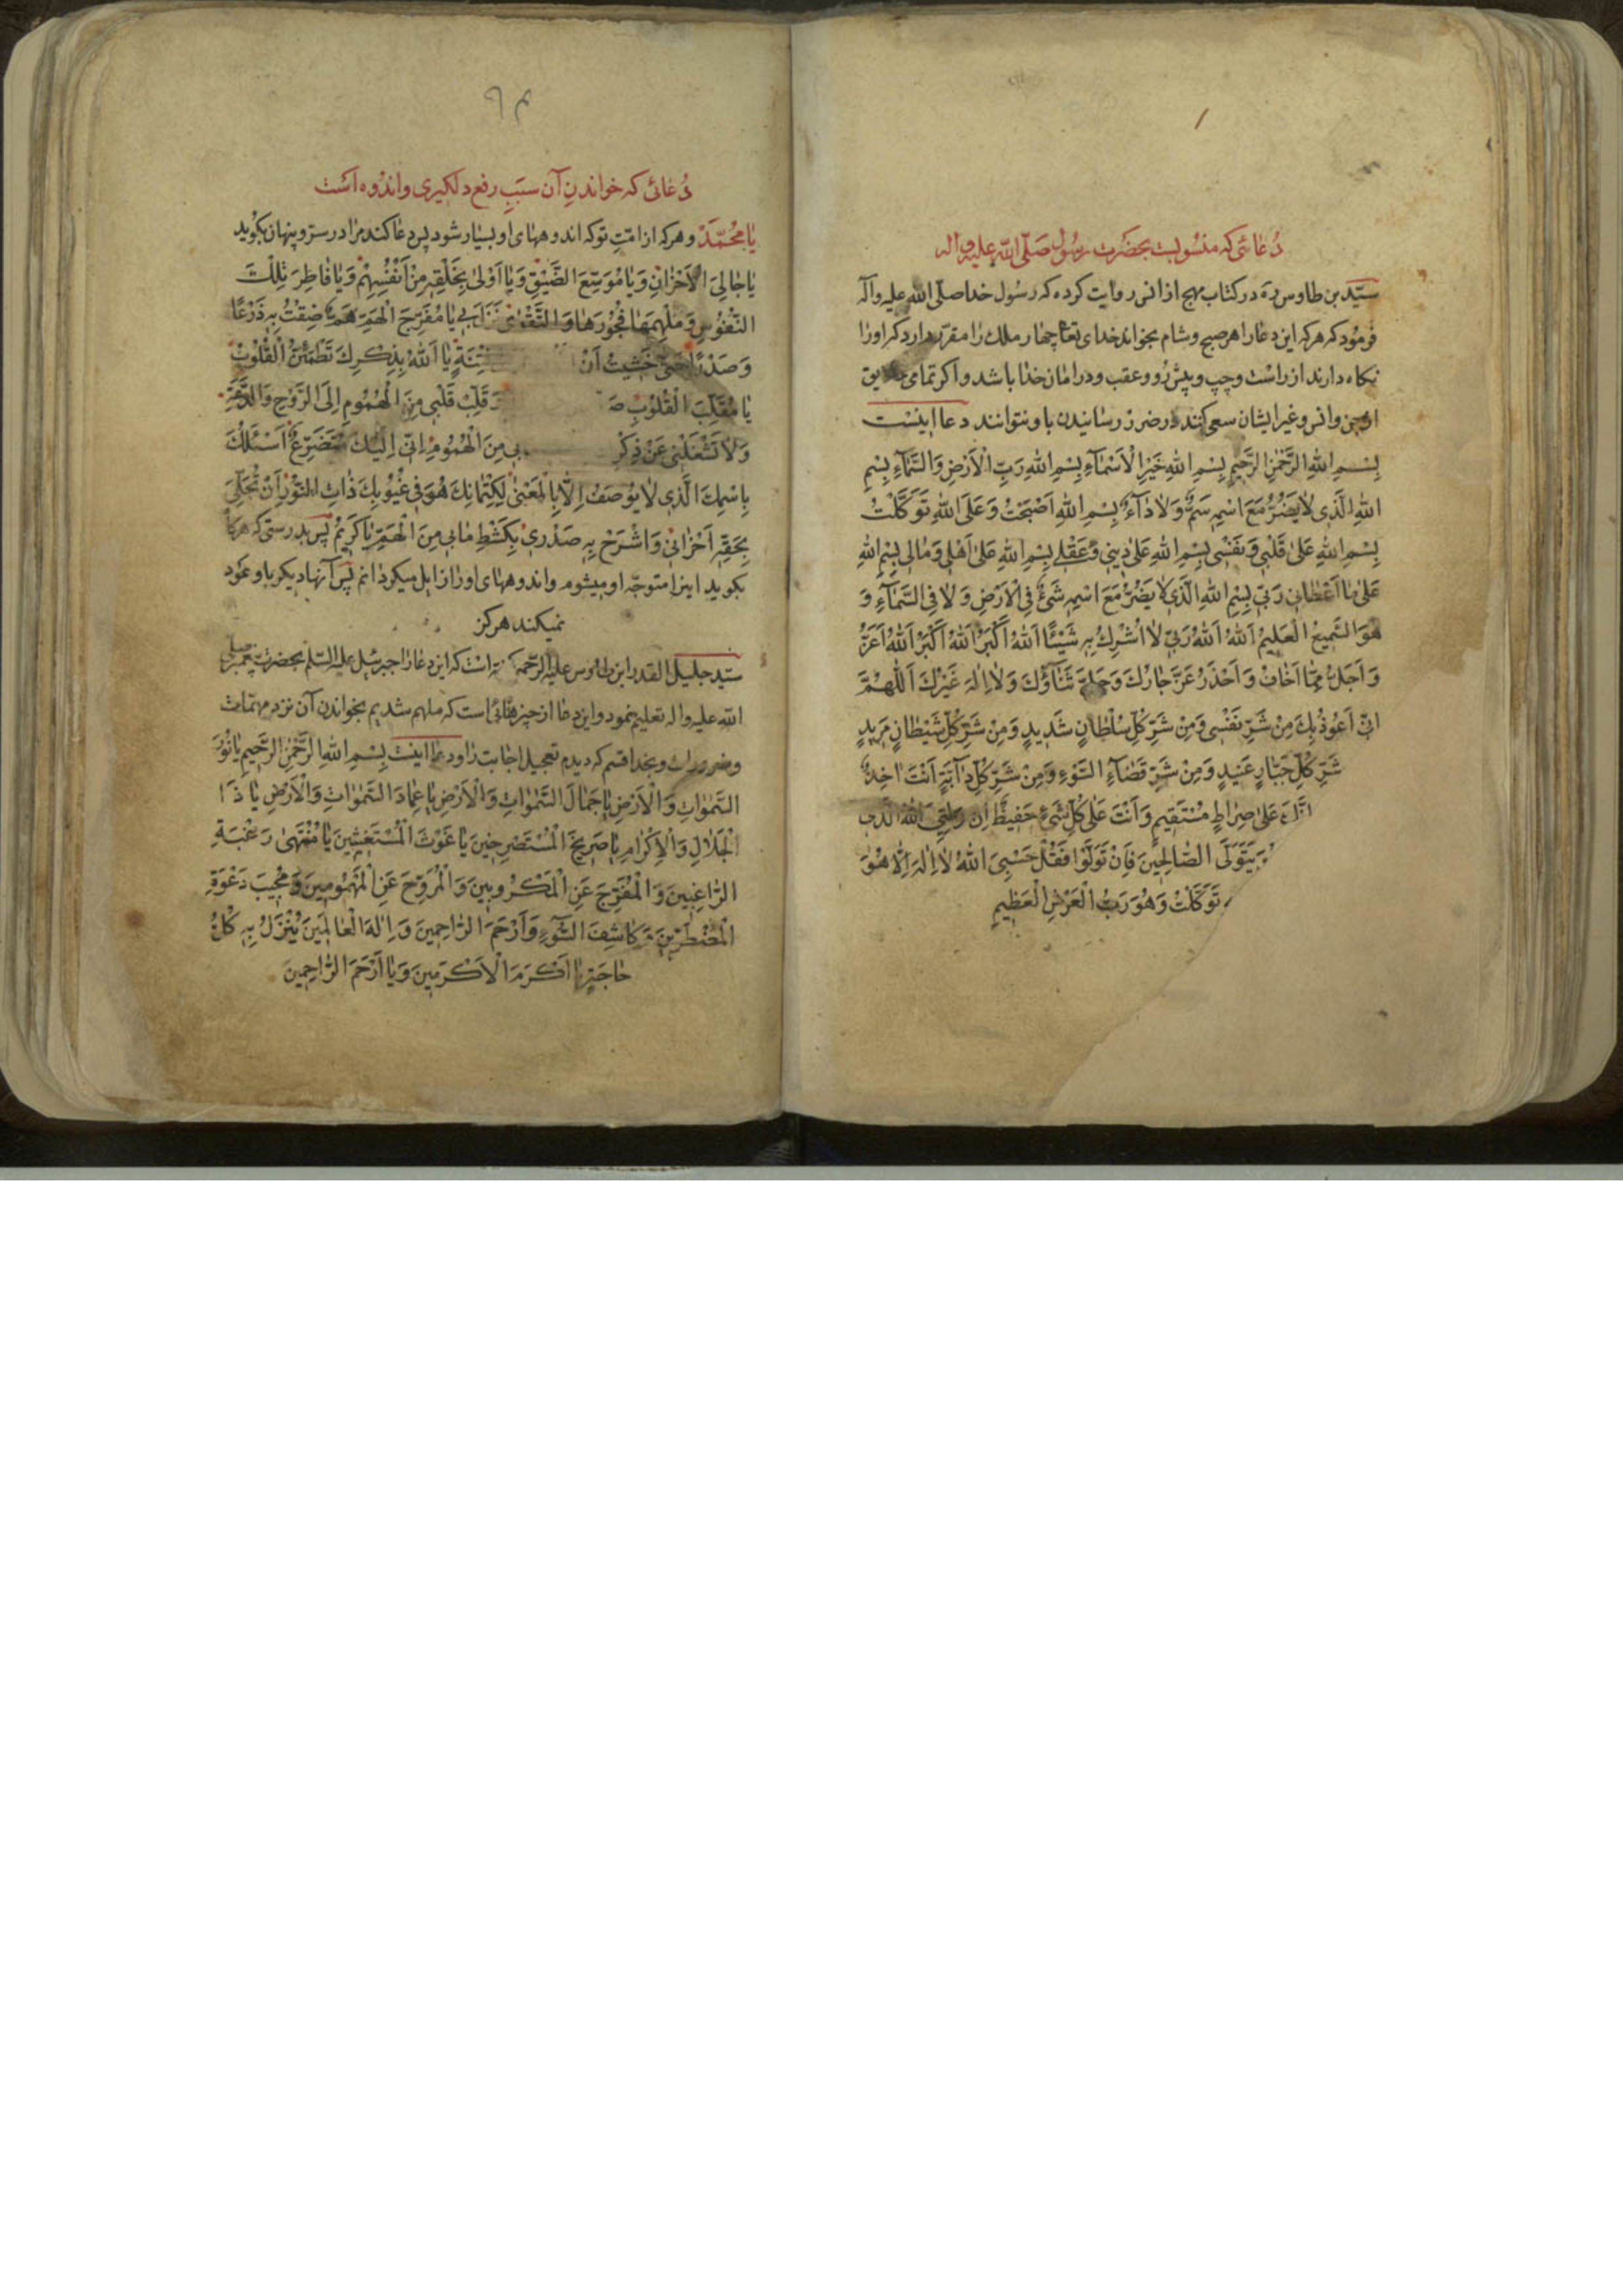 دُعائی که منسوبست بحضرت رسُول صَلّی اللّه علیه واله
سیّد بن طاوس ره در کتاب مهج از انس روایت کرده که رسُول خدا صلّی اللّه علیه وآله
فرمُود که هر که این دعا را هر صبح وشام بخواند خدای تعا چهار ملك را مقرّر دارد که اورا
نکاه دارند از راست وچپ وپیش رُو وعقب ودر امان خدا باشد واکر تمامی خلایق
از جن وانس وغیر ایشان سعی کنند در ضرر رسانیدن باو نتوانند دعا اینست
بِسْمِ اللهِ الرَّحْمٰنِ الرَّحِیمِ بِسْمِ اللهِ خَیْرِ الْاَسْمٰآءِ بِسْمِ اللهِ رَبِّ الْاَرْضِ وَالسَّمٰآءِ بِسْمِ
اللهِ الَّذِی لٰا یَضُرُّ مَعَ اسْمِهِ سَمٌّ وَلٰا دٰآءٌ بِسْمِ اللهِ اَصْبَحْتُ وَعَلَی اللهِ تَوَکَّلْتُ
بِسْمِ اللهِ عَلیٰ قَلْبِی وَنَفْسِی بِسْمِ اللهِ عَلیٰ دِینِی وَعَقْلِی بِسْمِ اللهِ عَلیٰ اَهْلِی وَمٰالِی بِسْمِ اللهِ
عَلیٰ مٰا اَعْطٰانِی رَبِّی بِسْمِ اللهِ الَّذِی لٰا یَضُرُّ مَعَ اسْمِهِ شَیْءٌ فِی الْاَرْضِ وَلٰا فِی السَّمٰآءِ وَ
هُوَ السَّمِیعُ الْعَلِیمُ اَللهُ اَللهُ رَبِّی لٰا اُشْرِكُ بِهِ شَیْئًا اَللهُ اَکْبَرُ اَللهُ اَکْبَرُ اَللهُ اَعَزُّ
وَاَجَلُّ مِمّٰا اَخٰافُ وَاَحْذَرُ عَزَّ جٰارُكَ وَجَلَّ ثَنٰاؤُكَ وَلٰا اِلٰهَ غَیْرُكَ اَللّٰهُمَّ
اِنِّی اَعُوذُ بِكَ مِنْ شَرِّ نَفْسِی وَمِنْ شَرِّ کُلِّ سُلْطٰانٍ شَدِیدٍ وَمِنْ شَرِّ کُلِّ شَیْطٰانٍ مَرِیدٍ
شَرِّ کُلِّ جَبّٰارٍ عَنِیدٍ وَمِنْ شَرِّ قَضٰآءِ السَّوْءِ وَمِنْ شَرِّ کُلِّ دٰآبَّةٍ اَنْتَ اٰخِذٌ
عَلیٰ صِرٰاطٍ مُسْتَقِیمٍ وَاَنْتَ عَلیٰ کُلِّ شَیْءٍ حَفِیظٌ اِنَّ وَلِیِّیَ اللهُ الَّذِی
یَتَوَلَّی الصّٰالِحِینَ فَاِنْ تَوَلَّوْا فَقُلْ حَسْبِیَ اللهُ لٰا اِلٰهَ اِلّٰا هُوَ
تَوَکَّلْتُ وَهُوَ رَبُّ الْعَرْشِ الْعَظِیمِ
دُعائی که خواندنِ آن سبَبِ رفع دلکیری واندُوه است
یٰا مُحَمَّدُ وهر که از امّتِ تو که اندوههای او بسیار شود پس دعا کند مرا در سرّ وپنهان بکوید
یٰا جٰالِیَ الْاَحْزٰانِ وَیٰا مُوَسِّعَ الضِّیْقِ وَیٰا اَوْلیٰ بِخَلْقِهِ مِنْ اَنْفُسِهِمْ وَیٰا فٰاطِرَ تِلْكَ
النُّفُوسِ وَمُلْهِمَهٰا فُجُورَهٰا وَالتَّقْویٰ نَزَلَ بِی یٰا مُفَرِّجَ الْهَمِّ هَمٌّ ضِقْتُ بِهِ ذَرْعًا
وَصَدْرًا حَتّیٰ خَشِیتُ اَنْ فِتْنَةٍ یٰا اَللهُ بِذِکْرِكَ تَطْمَئِنُّ الْقُلُوبُ
یٰا مُقَلِّبَ الْقُلُوبِ قَلِّبْ قَلْبِی مِنَ الْهُمُومِ اِلَی الرَّوْحِ وَالدَّعَةِ
وَلٰا تَشْغَلْنِی عَنْ ذِکْرِ بِی مِنَ الْهُمُومِ اِنِّی اِلَیْكَ مُتَضَرِّعٌ اَسْئَلُكَ
بِاسْمِكَ الَّذِی لٰا یُوصَفُ اِلّٰا بِالْمَعْنیٰ لِکِتْمٰانِكَ هُوَ فِی غُیُوبِكَ ذٰاتِ النُّورِ اَنْ تُجَلِّیَ
بِحَقِّهِ اَحْزٰانِی وَاشْرَحْ بِهِ صَدْرِی بِکَشْطِ مٰا بِی مِنَ الْهَمِّ یٰا کَرِیمُ پس بدرستی که هر کاه
بکوید اینرا متوجّه او میشوم واندوههای اورا زایل میکردانم پس آنها دیکر باو عَود
نمیکند هرکز
سیّد جلیل القدر ابن طاوس علیه الرّحمه است که این دعا را جبرئیل علیه السّلم بحضرت پیغمبر صلی
اللّه علیه واله تعلیم نمود واین دعا از چیزهائی است که ملهم شدیم بخواندن آن نزد مهمّات
وضرورات وبخدا قسم که دیدم تعجیل اجابت را ودعا اینست بِسْمِ اللهِ الرَّحْمٰنِ الرَّحِیمِ یٰا نُورَ
السَّمٰوٰاتِ وَالْاَرْضِ یٰا جَمٰالَ السَّمٰوٰاتِ وَالْاَرْضِ یٰا عِمٰادَ السَّمٰوٰاتِ وَالْاَرْضِ یٰا ذَا
الْجَلٰالِ وَالْاِکْرٰامِ یٰا صَرِیخَ الْمُسْتَصْرِخِینَ یٰا غَوْثَ الْمُسْتَغِیثِینَ یٰا مُنْتَهیٰ رَغْبَةِ
الرّٰاغِبِینَ وَالْمُفَرِّجَ عَنِ الْمَکْرُوبِینَ وَالْمُرَوِّحَ عَنِ الْمَهْمُومِینَ وَمُجِیبَ دَعْوَةِ
الْمُضْطَرِّینَ وَکٰاشِفَ السُّوٓءِ وَاَرْحَمَ الرّٰاحِمِینَ وَاِلٰهَ الْعٰالَمِینَ یُنْزَلُ بِهِ کُلُّ
حٰاجَةٍ یٰا اَکْرَمَ الْاَکْرَمِینَ وَیٰا اَرْحَمَ الرّٰاحِمِینَ